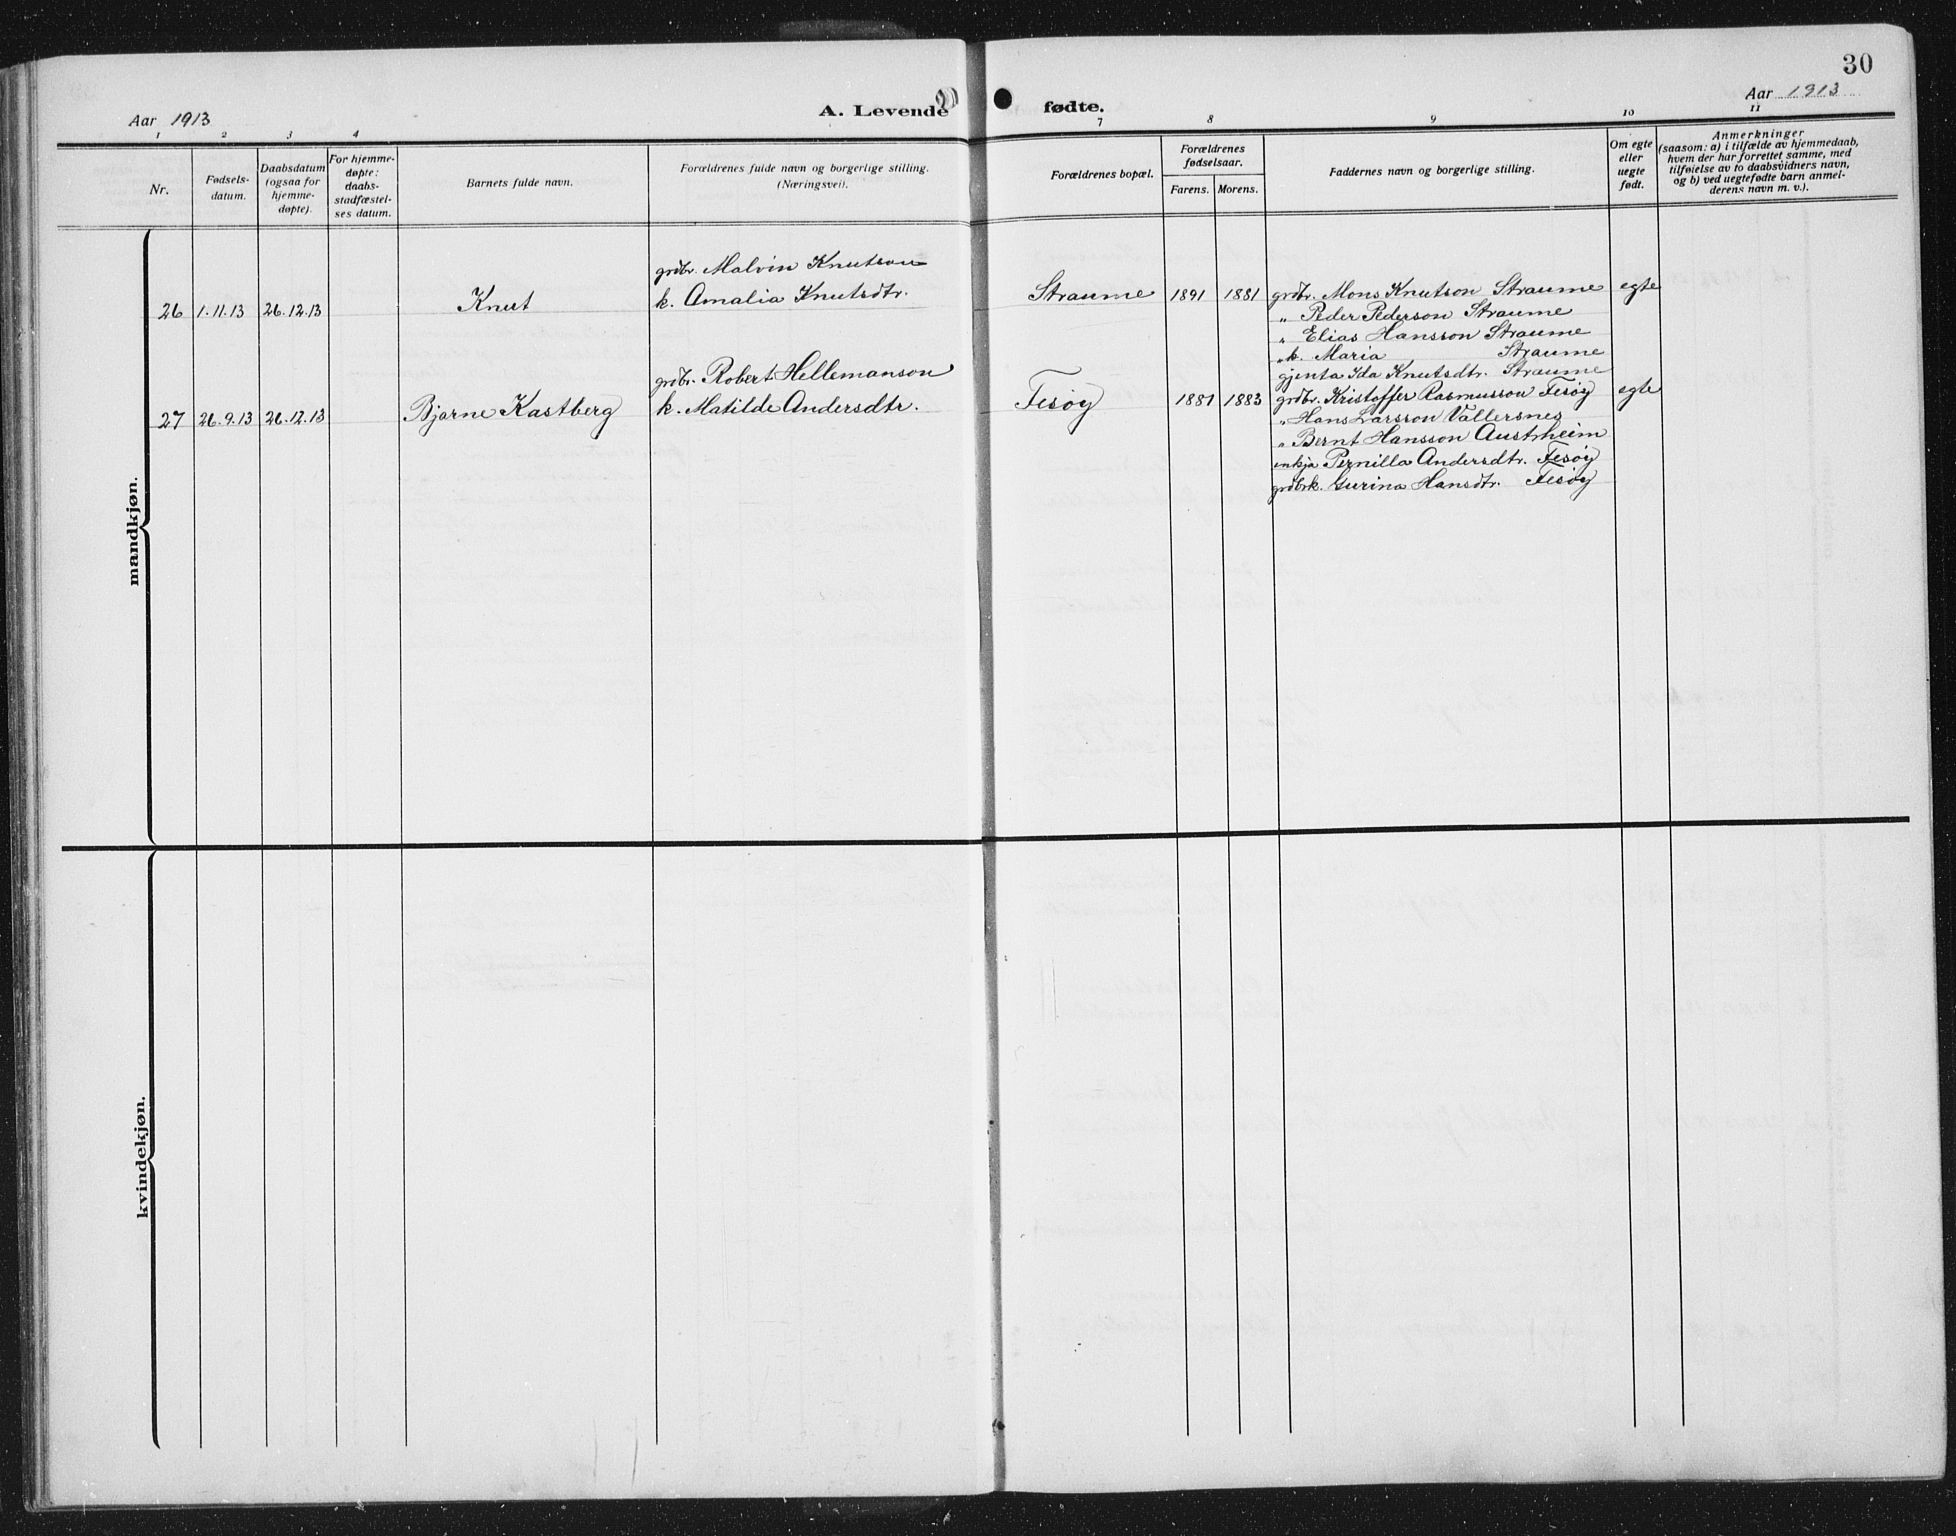 30
Aar 1913
A. Levende fødte.
Aar 1913
1 2 3 4 7 8 9 10 11
Nr.
Fødsels-
datum.
Daabsdatum
(ogsaa for
hjemme-
døpte).
For hjemme-
døpte:
daabs-
stadfæstel-
ses datum.
Barnets fulde navn.
Forældrenes fulde navn og borgerlige stilling.
(Næringsvei).
Forældrenes bopæl.
Forældrenes
fødselsaar.
Farens. Morens.
Faddernes navn og borgerlige stilling.
Om egte
eller
uegte
født.
Anmerkninger
(saasom: a) i tilfælde av hjemmedaab,
hvem der har forrettet samme, med
tilføielse av to daabsvidners navn,
og b) ved uegtefødte barn anmel-
derens navn m. v.).
mandkjøn.
26 1.11.13 26.12.13 Knut
grdbr. Malvin Knutson
k. Amalia Knutsdtr.
Straume 1891 1881
grdbr. Mons Knutson Straume
„ Peder Pederson Straume
„ Elias Hansson Straume
„ k. Maria Straume
gjenta Ida Knutsdtr. Straume
egte
27 26.9.13 26.12.13 Bjarne Kastberg
grdbr. Robert Hellemanson
k. Matilde Andersdtr.
Fesøy 1881 1883
grdbr. Kristoffer Rasmusson Fesøy
„ Hans Larsson Vallersnes
„ Bernt Hansson Austrheim
enkja Pernilla Andersdtr. Fesøy
grdbrk. Gurina Hansdtr. Fesøy
egte
kvindekjøn.